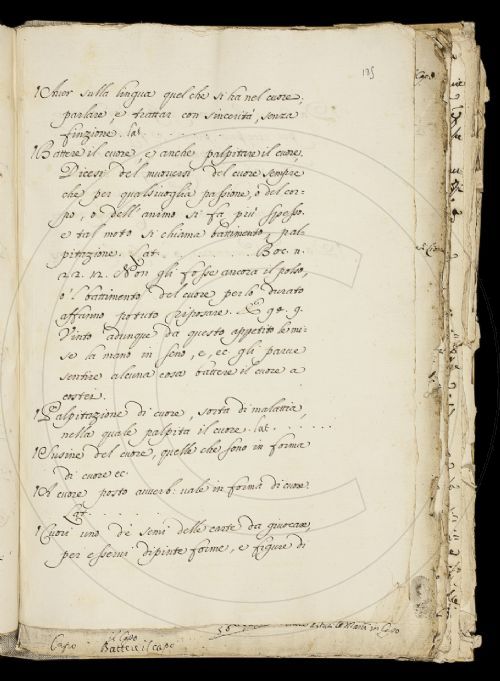 185
Aver sulla lingua quel che si ha nel cuore,
parlare, e trattar con sincerità, senza
finzione. lat. . . . . . . .
Battere il cuore, e anche palpitare il cuore,
Dicesi del muoversi del cuore sempre
che per qualsivoglia passione, o del cor=
po, o dell'animo si fa più spesso.
e tal moto si chiama battimento, pal=
pitazione. Lat. . . . . . . . Boc. n.
42. 12. Non gli fosse ancora il polso,
o 'l battimento del cuore per lo durato
affanno potuto riposare. E 98. 9.
Vinto adunque da questo appetito le mi=
se la mano in seno, e, ec gli parve
sentire alcuna cosa battere il cuore a
costei.
Palpitazione di cuore, sorta di malattia,
nella quale palpita il cuore. lat. . . . . .
Susine del cuore, quelle che sono in forma
di cuore ec.
A cuore posto avverb. vale in forma di cuore.
Lat. . . . . . . .
Cuori uno de' semi delle carte da giuocare,
per esservi dipinte forme, e figure di
Capo
il Capo
Battere il capo
in Capo